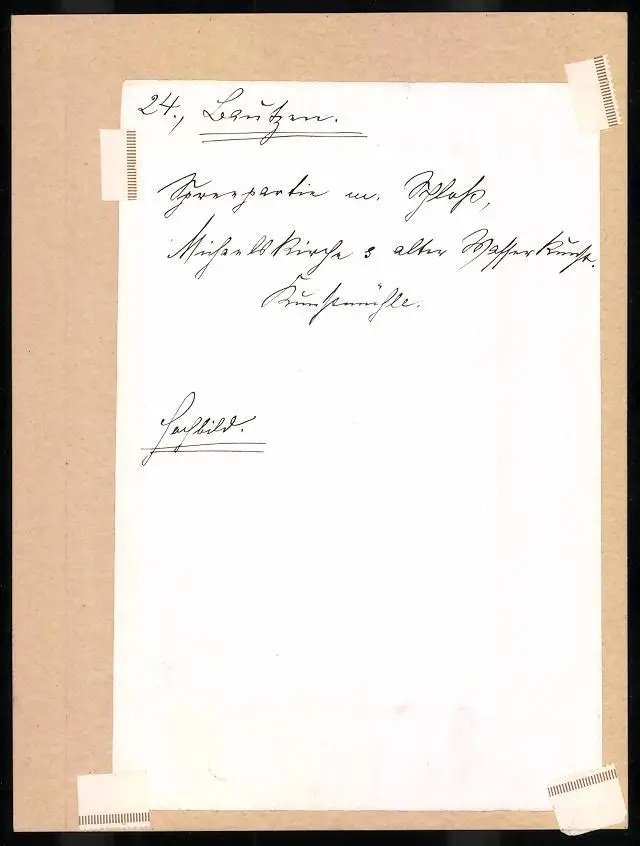 24., Bautzen.
Spreepartie m. Schloß,
Michaelskirche & alter Wasserkunst.
Kunstmühle.
Hochbild.